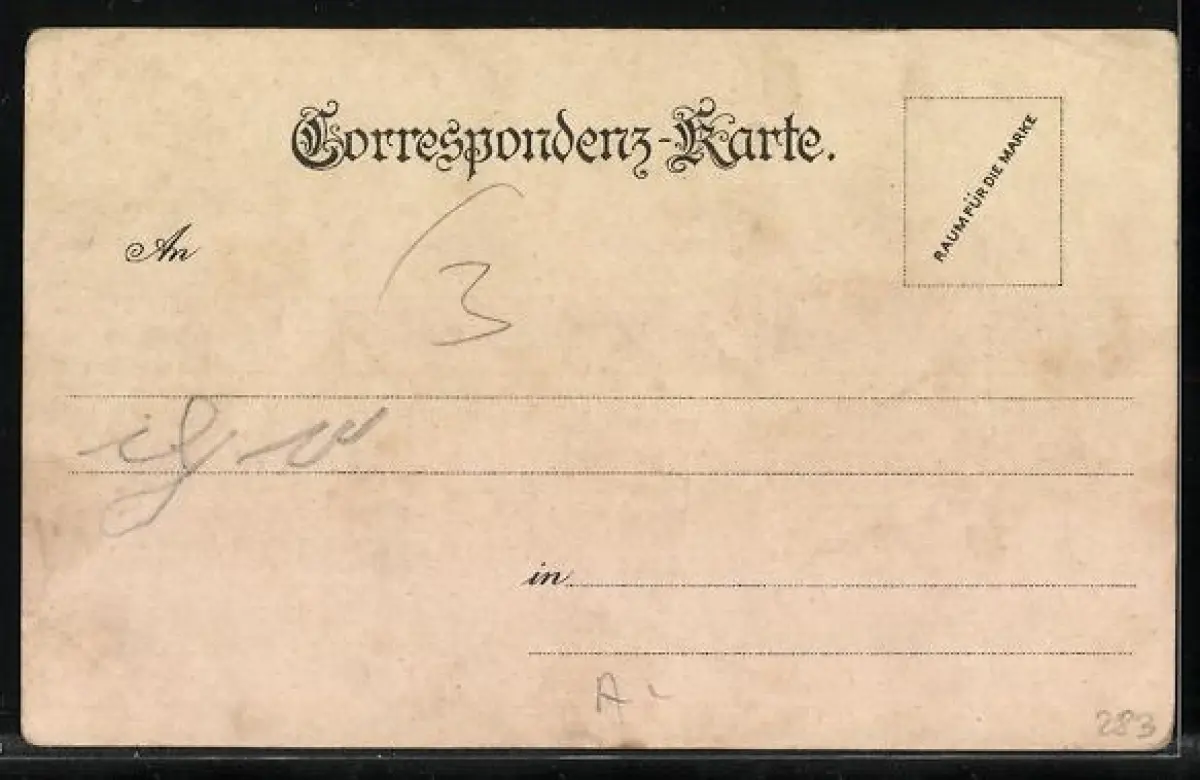 Correspondenz-Karte.
RAUM FÜR DIE MARKE
An
3
in
A
283